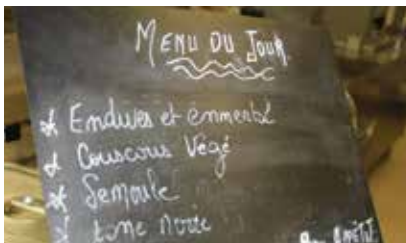 MENU DU JOUR
* Endives et emmental
* Couscous Végé
* Semoule